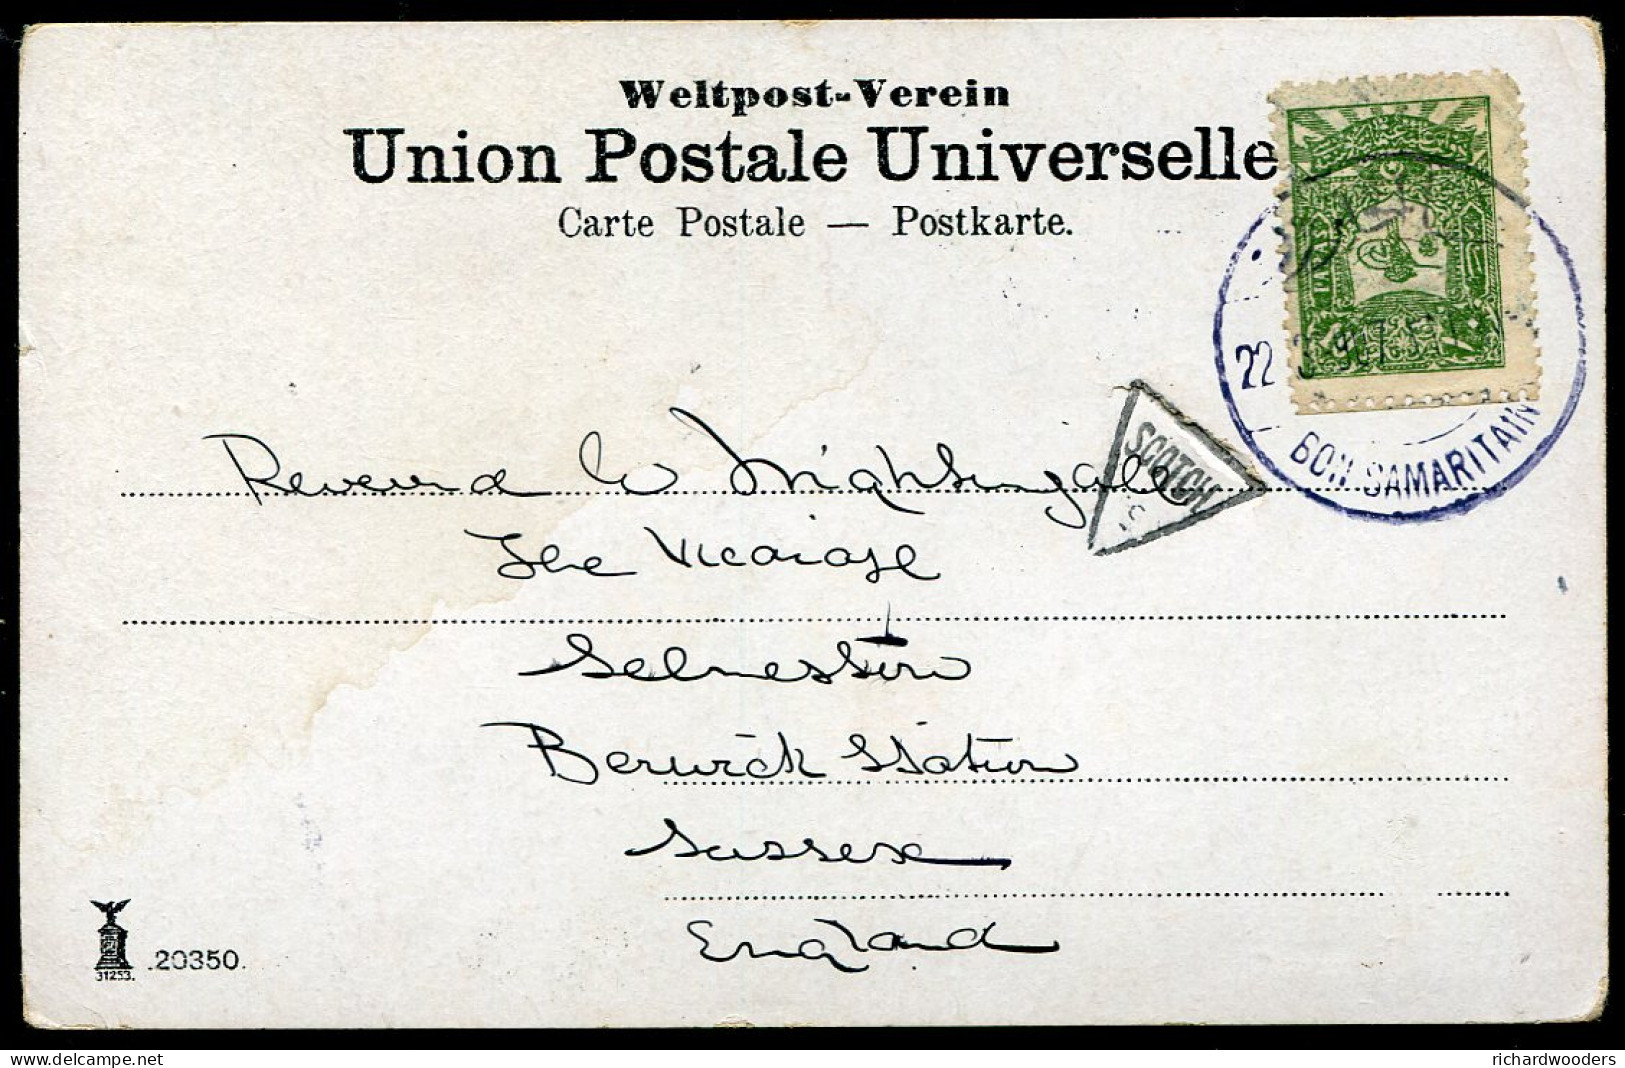 Weltpost-Verein
Union Postale Universelle
Carte Postale — Postkarte.
PARAS
22 3 907
BON SAMARITAIN
SCOTCH
Reverend W Nightingale
The Vicarage
Selmeston
Berwick Station
Sussex
England
31253.
.20350.
delcampe.net
richardwooders